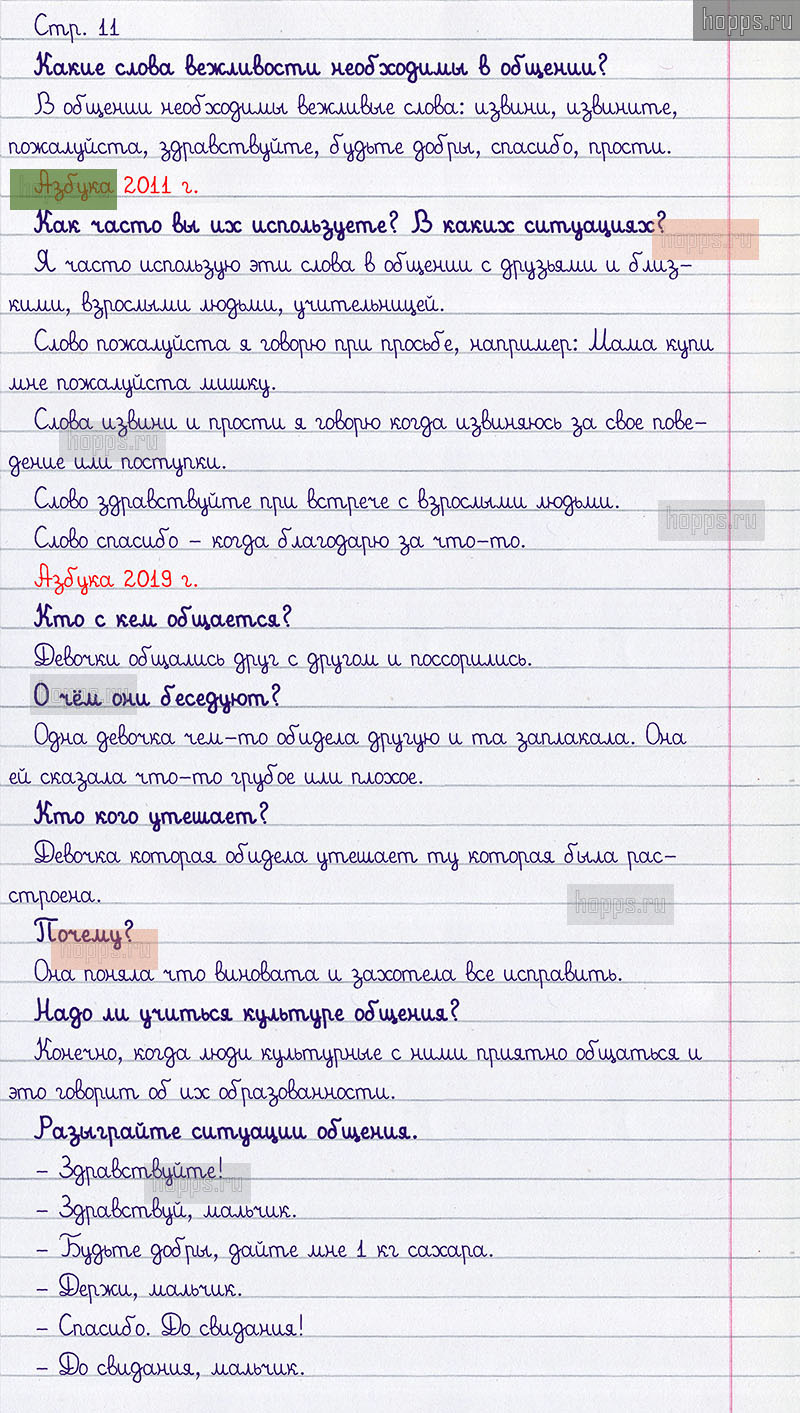 Стр. 11
hopps.ru
Какие слова вежливости необходимы в общении?
В общении необходимы вежливые слова: извини, извините,
пожалуйста, здравствуйте, будьте добры, спасибо, прости.
Азбука 2011 г.
hopps.ru
Как часто вы их используете? В каких ситуациях?
hopps.ru
Я часто использую эти слова в общении с друзьями и близ-
кими, взрослыми людьми, учительницей.
Слово пожалуйста я говорю при просьбе, например: Мама купи
мне пожалуйста мишку.
Слова извини и прости я говорю когда извиняюсь за свое пове-
hopps.ru
дение или поступки.
Слово здравствуйте при встрече с взрослыми людьми.
hopps.ru
Слово спасибо – когда благодарю за что-то.
Азбука 2019 г.
Кто с кем общается?
Девочки общались друг с другом и поссорились.
О чём они беседуют?
hopps.ru
Одна девочка чем-то обидела другую и та заплакала. Она
ей сказала что-то грубое или плохое.
Кто кого утешает?
Девочка которая обидела утешает ту которая была рас-
строена.
hopps.ru
Почему?
hopps.ru
Она поняла что виновата и захотела все исправить.
Надо ли учиться культуре общения?
Конечно, когда люди культурные с ними приятно общаться и
это говорит об их образованности.
Разыграйте ситуации общения.
– Здравствуйте!
hopps.ru
– Здравствуй, мальчик.
– Будьте добры, дайте мне 1 кг сахара.
– Держи, мальчик.
– Спасибо. До свидания!
– До свидания, мальчик.